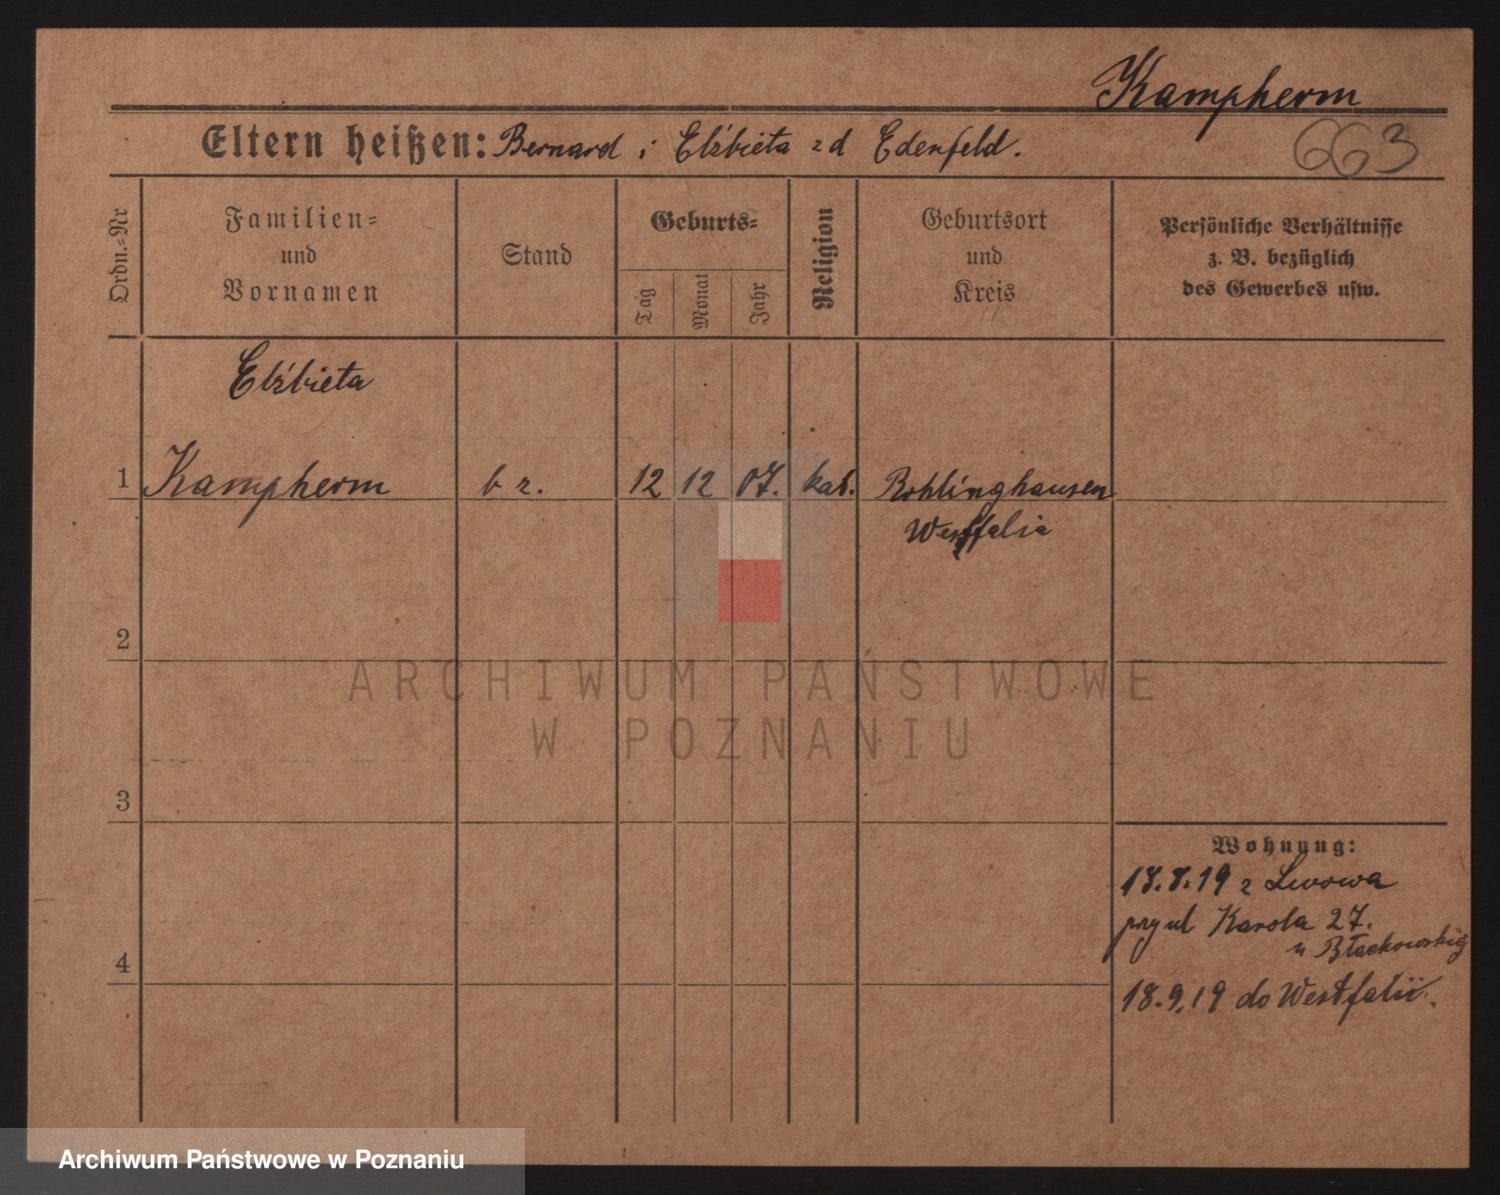 Kampherm
Eltern heißen: Bernard i Elżbieta z d Edenfeld.
663
Ordn.=Nr
Familien=
und
Vornamen
Stand
Geburts=
Tag
Monat
Jahr
Religion
Geburtsort
und
Kreis
Persönliche Verhältnisse
z. B. bezüglich
des Gewerbes usw.
Elżbieta
1 Kampherm b z. 12 12 07. kat. Rohlinghausen
Westfalia
2
ARCHIWUM PAŃSTWOWE
W POZNANIU
3
Wohnung:
18.8.19 z Lwowa
przy ul Karola 27.
u Błachowskiej
4
18.9.19 do Westfalii.
Archiwum Państwowe w Poznaniu